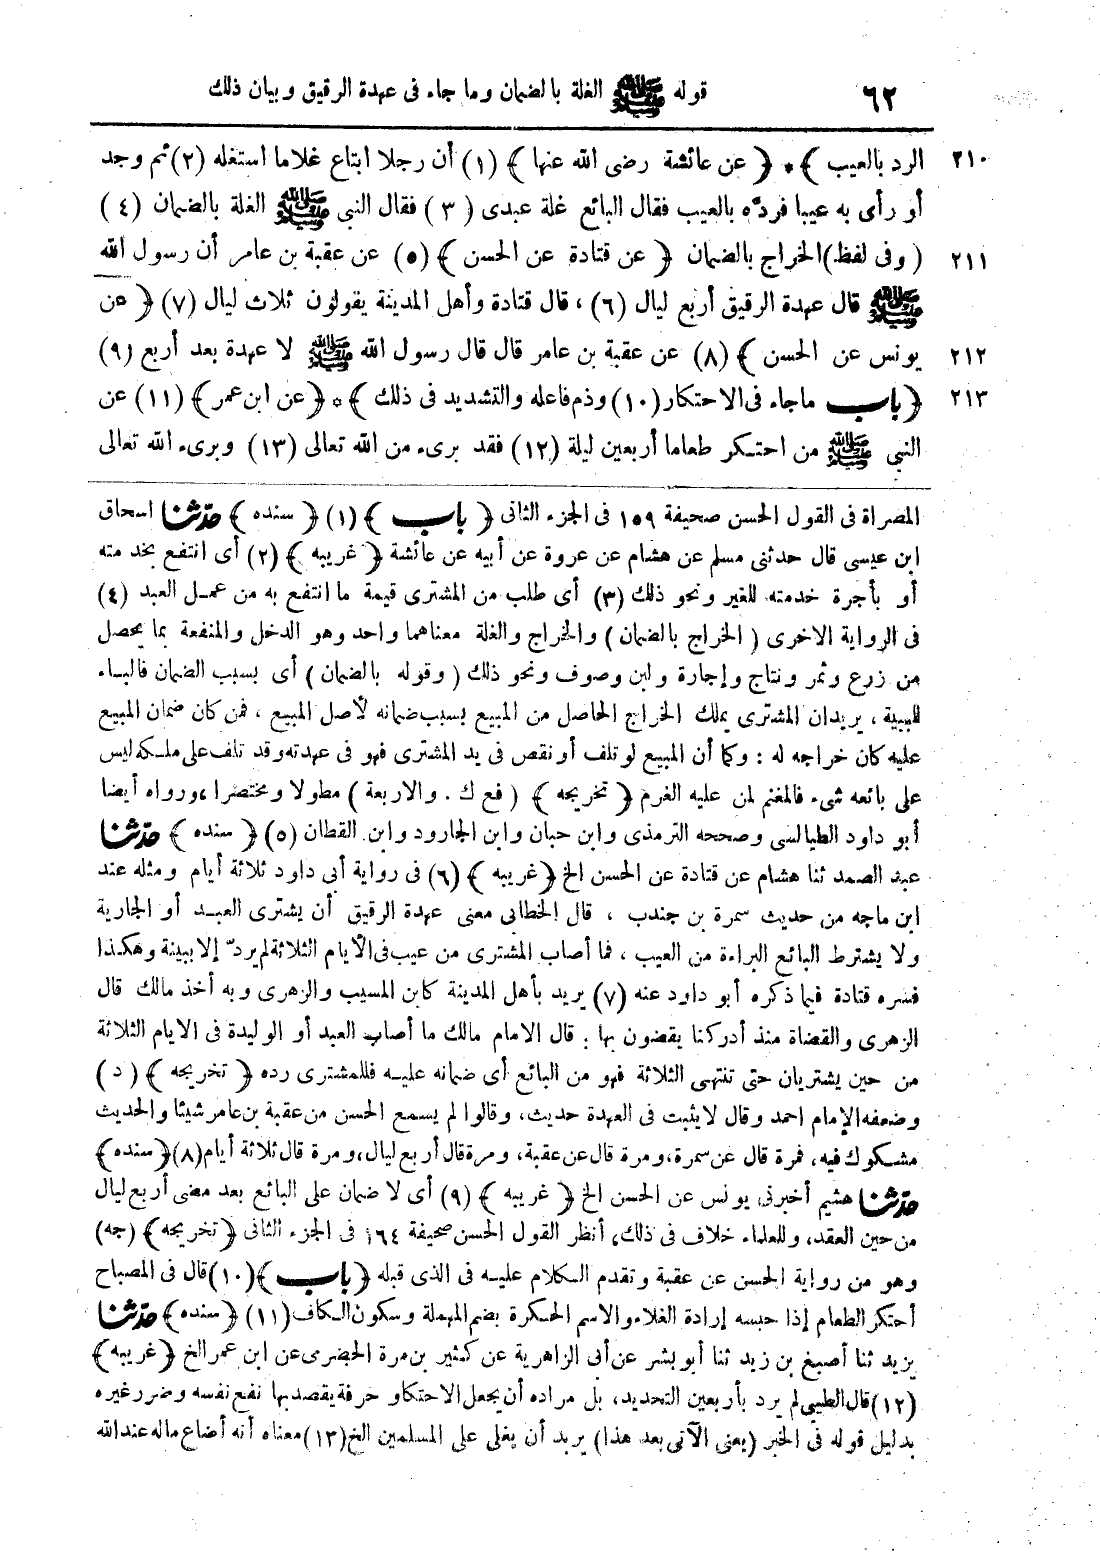 ٦٢ قوله ﷺ الغلة بالضمان وما جاء فى عهدة الرقيق وبيان ذلك
٢١٠ الرد بالعيب ﴾ * ﴿ عن عائشة رضى الله عنها ﴾ (١) أن رجلا ابتاع غلاما استغله (٢) ثم وجد
أو رأى به عيبا فرده بالعيب فقال البائع غلة عبدى (٣) فقال النبي ﷺ الغلة بالضمان (٤)
٢١١ (وفى لفظ) الخراج بالضمان ﴿ عن قتادة عن الحسن ﴾ (٥) عن عقبة بن عامر أن رسول الله
ﷺ قال عهدة الرقيق أربع ليال (٦) ، قال قتادة وأهل المدينة يقولون ثلاث ليال (٧) ﴿ عن
٢١٢ يونس عن الحسن ﴾ (٨) عن عقبة بن عامر قال قال رسول الله ﷺ لا عهدة بعد أربع (٩)
٢١٣ ﴿ باب ما جاء فى الاحتكار (١٠) وذم فاعله والتشديد فى ذلك ﴾ * ﴿ عن ابن عمر ﴾ (١١) عن
النبي ﷺ من احتكر طعاما أربعين ليلة (١٢) فقد برىء من الله تعالى (١٣) وبرىء الله تعالى
المصراة فى القول الحسن صحيفة ١٥٩ فى الجزء الثانى ﴿ باب ﴾ (١) ﴿ سنده ﴾ حدثنا اسحاق
ابن عيسى قال حدثنى مسلم عن هشام عن عروة عن أبيه عن عائشة ﴿ غريبه ﴾ (٢) أى انتفع بخدمته
أو بأجرة خدمته للغير ونحو ذلك (٣) أى طلب من المشترى قيمة ما انتفع به من عمل العبد (٤)
فى الرواية الاخرى (الخراج بالضمان) والخراج والغلة معناهما واحد وهو الدخل والمنفعة بما يحصل
من زرع وثمر ونتاج وإجارة ولبن وصوف ونحو ذلك (وقوله بالضمان) أى بسبب الضمان فالباء
للسببية ، يريد ان المشترى يملك الخراج الحاصل من المبيع بسبب ضمانه لأصل المبيع ، فمن كان ضمان المبيع
عليه كان خراجه له : وكما أن المبيع لو تلف أو نقص فى يد المشترى فهو فى عهدته وقد تلف على ملكه ليس
على بائعه شىء فالمغنم لمن عليه الغرم ﴿ تخريجه ﴾ (فع ك . والاربعة) مطولا ومختصرا ، ورواه أيضا
أبو داود الطيالسى وصححه الترمذى وابن حبان وابن الجارود وابن القطان (٥) ﴿ سنده ﴾ حدثنا
عبد الصمد ثنا هشام عن قتادة عن الحسن الخ ﴿ غريبه ﴾ (٦) فى رواية أبى داود ثلاثة أيام ومثله عند
ابن ماجه من حديث سمرة بن جندب ، قال الخطابى معنى عهدة الرقيق أن يشترى العبد أو الجارية
ولا يشترط البائع البراءة من العيب ، فما أصاب المشترى من عيب فى الأيام الثلاثة لم يرد إلا ببينة وهكذا
فسره قتادة فيما ذكره أبو داود عنه (٧) يريد بأهل المدينة كابن المسيب والزهرى وبه أخذ مالك قال
الزهرى والقضاة منذ أدركنا يقضون بها : قال الامام مالك ما أصاب العبد أو الوليدة فى الايام الثلاثة
من حين يشتريان حتى تنتهى الثلاثة فهو من البائع أى ضمانه عليه فللمشترى رده ﴿ تخريجه ﴾ (د)
وضعفه الإمام احمد وقال لا يثبت فى العهدة حديث ، وقالوا لم يسمع الحسن من عقبة بن عامر شيئا والحديث
مشكوك فيه ، فمرة قال عن سمرة ، ومرة قال عن عقبة ، ومرة قال أربع ليال ، ومرة قال ثلاثة أيام (٨) ﴿ سنده ﴾
حدثنا هشيم أخبرنى يونس عن الحسن الخ ﴿ غريبه ﴾ (٩) أى لا ضمان على البائع بعد مضى أربع ليال
من حين العقد ، وللعلماء خلاف فى ذلك ، أنظر القول الحسن صحيفة ١٦٤ فى الجزء الثانى ﴿ تخريجه ﴾ (جه)
وهو من رواية الحسن عن عقبة وتقدم الكلام عليه فى الذى قبله ﴿ باب ﴾ (١٠) قال فى المصباح
أحتكر الطعام إذا حبسه إرادة الغلاء والاسم الحكرة بضم المهملة وسكون الكاف (١١) ﴿ سنده ﴾ حدثنا
يزيد ثنا أصبغ بن زيد ثنا أبو بشر عن أبى الزاهرية عن كثير بن مرة الحضرمى عن ابن عمر الخ ﴿ غريبه ﴾
(١٢) قال الطيبى لم يرد بأربعين التحديد ، بل مراده أن يجعل الاحتكار حرفة يقصد بها نفع نفسه وضرر غيره
بدليل قوله فى الخبر (يعنى الآتى بعد هذا) يريد أن يغلى على المسلمين الخ (١٣) معناه أنه أضاع ماله عند الله